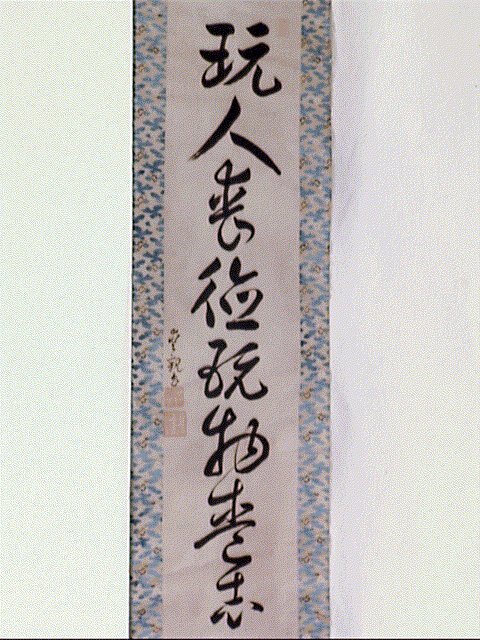 玩人喪德玩物喪志